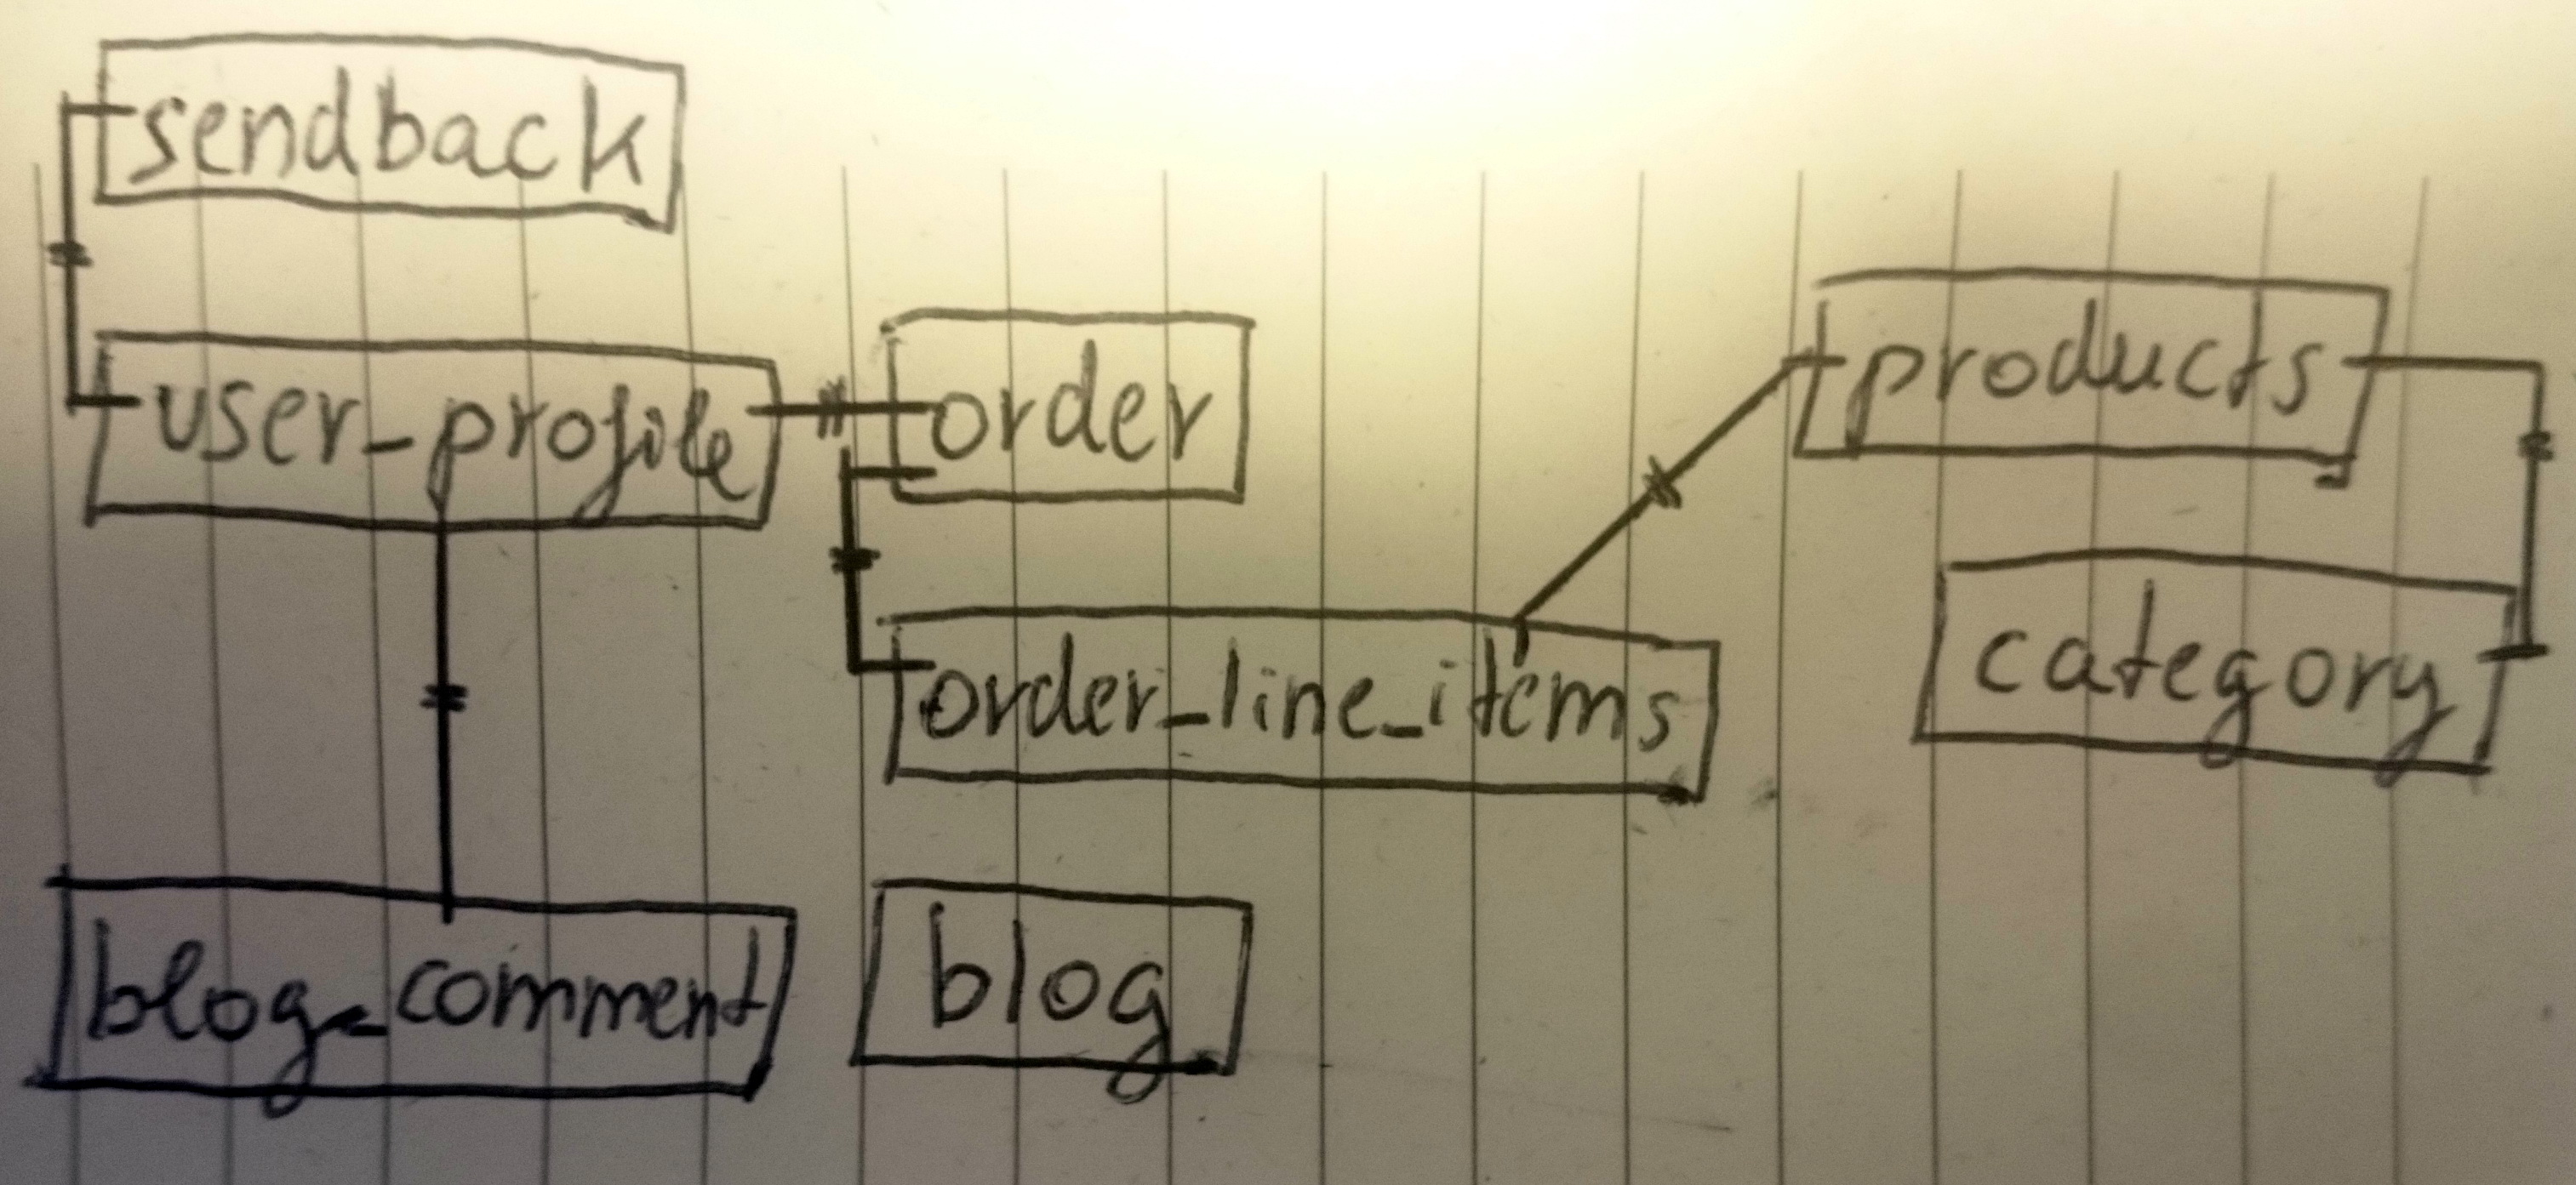 sendback
user_profile
order
products
order_line_items
category
blog_comment
blog